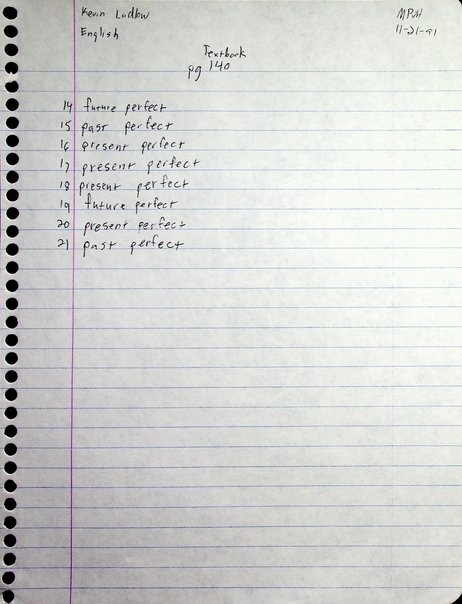 Kevin Ludlow
MPVH
English
11-21-91
Textbook
pg 140
14 future perfect
15 past perfect
16 present perfect
17 present perfect
18 present perfect
19 future perfect
20 present perfect
21 past perfect